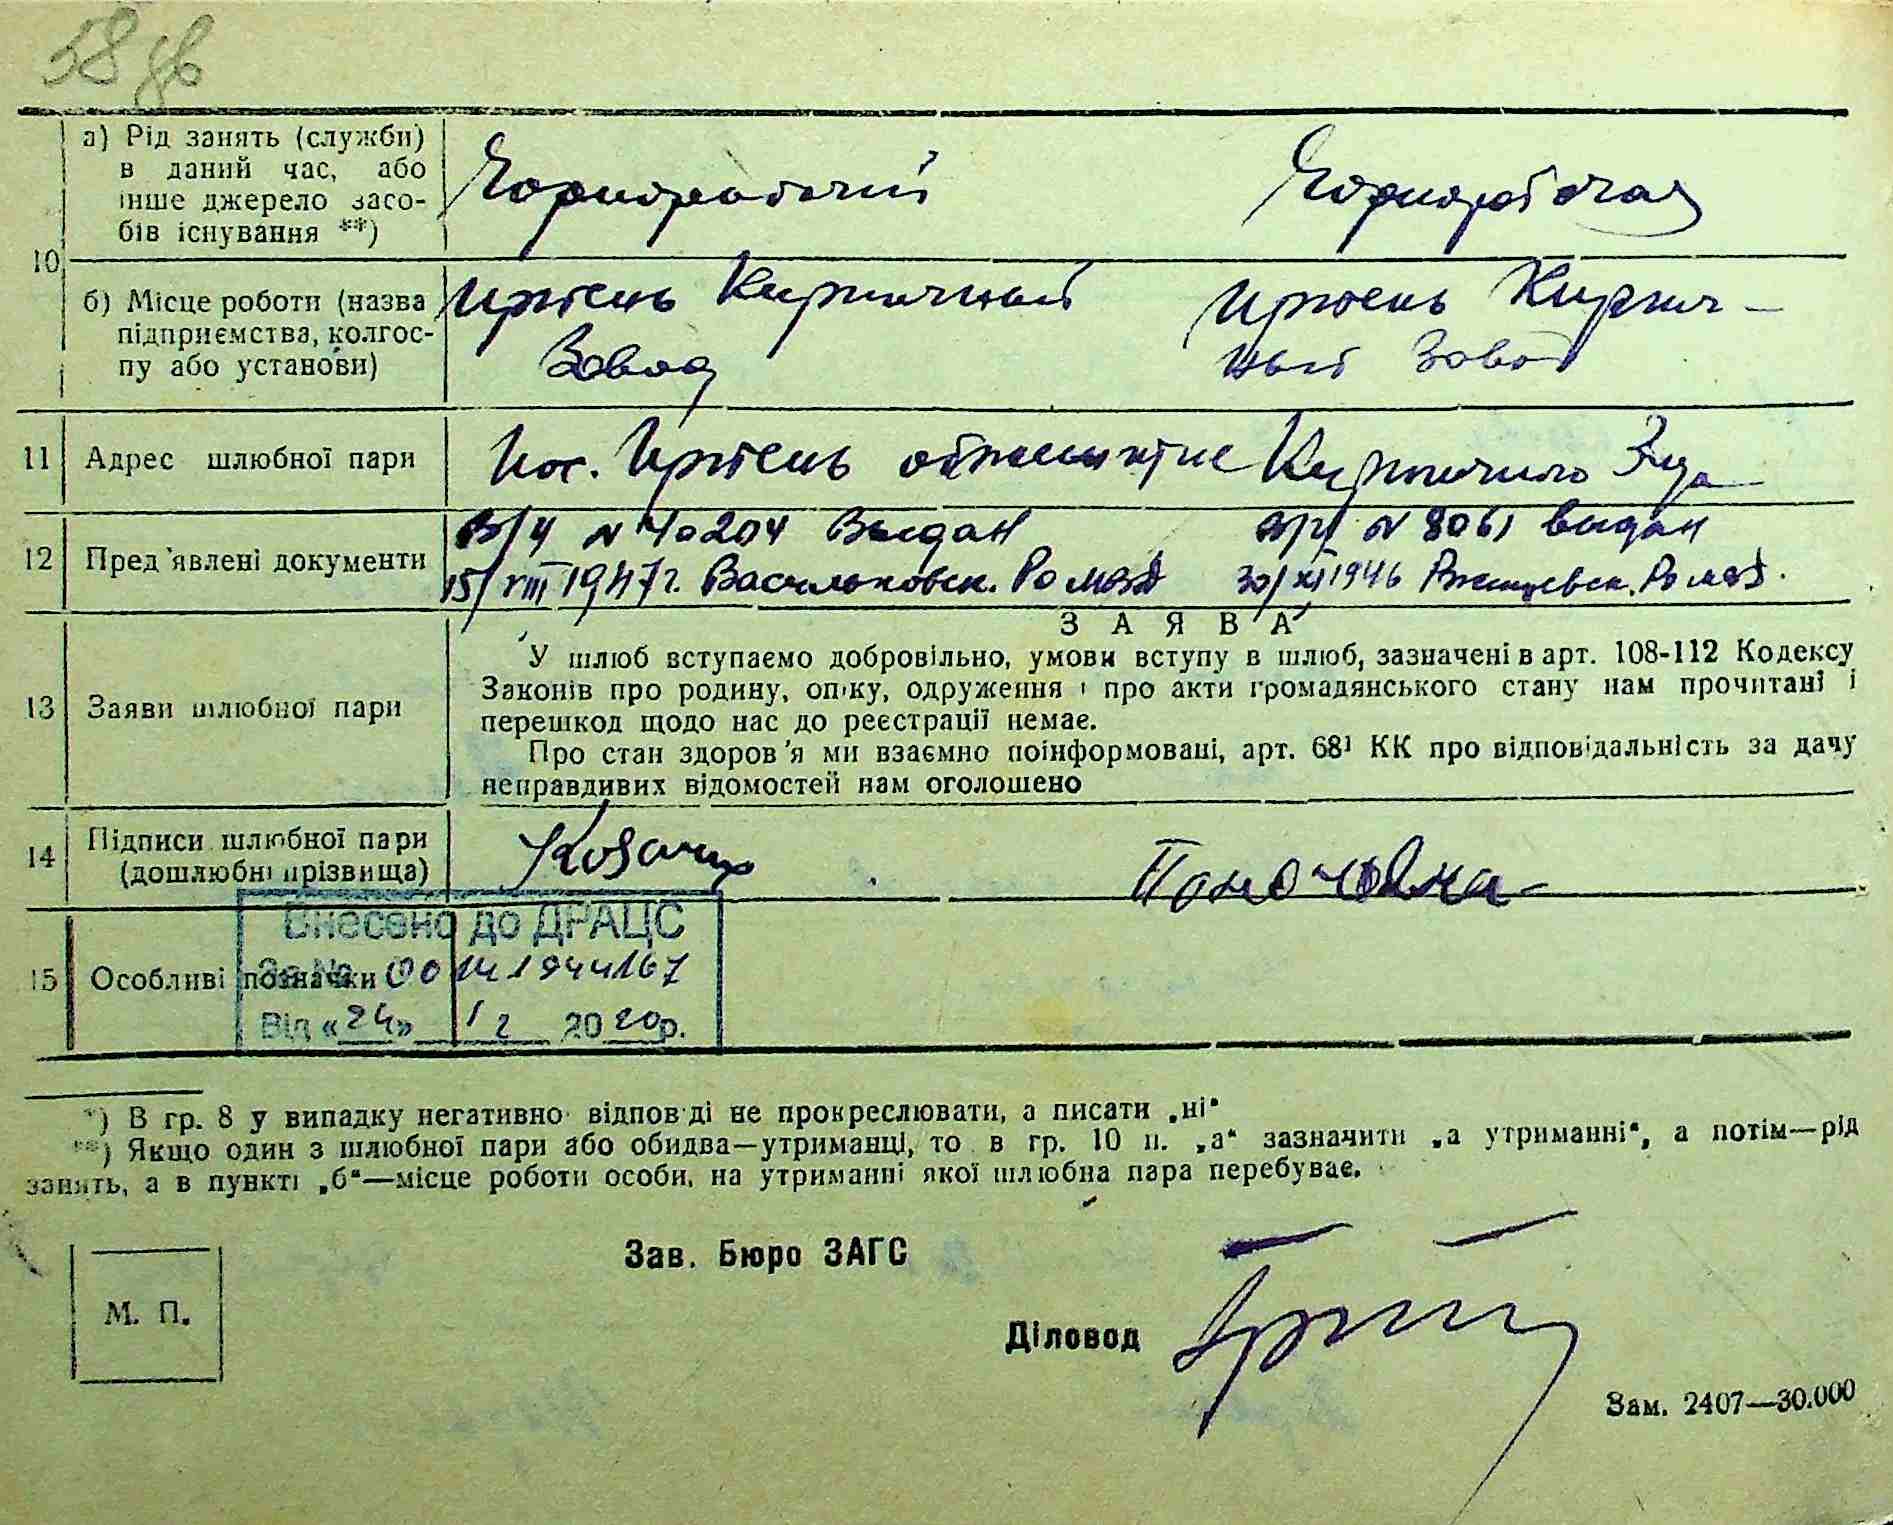 58 зв
а) Рід занять (служби)
в даний час, або
інше джерело засо-
бів існування **)
Чорнорабочий
Чорнорабочая
10
б) Місце роботи (назва
підприємства, колгос-
пу або установи)
Ирпень Кирпичный
Завод
Ирпень Кирпич-
ный Завод
11 Адрес шлюбної пари
Пос. Ирпень общежитие Кирпичного З-да
12 Пред'явлені документи
В/ч № 40204 Выдан
15/VIII 1947г. Васильковск. Ро МВД
№ 8061 выдан
30/XI 1946 Ржищевск. Ро МВД.
З А Я В А
13 Заяви шлюбної пари
У шлюб вступаємо добровільно, умови вступу в шлюб, зазначені в арт. 108-112 Кодексу
Законів про родину, опіку, одруження і про акти громадянського стану нам прочитані і
перешкод щодо нас до реєстрації немає.
Про стан здоров'я ми взаємно поінформовані, арт. 68¹ КК про відповідальність за дачу
неправдивих відомостей нам оголошено
14 Підписи шлюбної пари
(дошлюбні прізвища)
15 Особливі позначки
Внесено до ДРАЦС
За № 00141944167
Від «24» 12 2020р.
*) В гр. 8 у випадку негативно відповіді не прокреслювати, а писати „ні“
**) Якщо один з шлюбної пари або обидва—утриманці, то в гр. 10 п. „а“ зазначити „а утриманні“, а потім—рід
занять, а в пункті „б“—місце роботи особи, на утриманні якої шлюбна пара перебуває.
Зав. Бюро ЗАГС
М. П.
Діловод
Зам. 2407—30.000